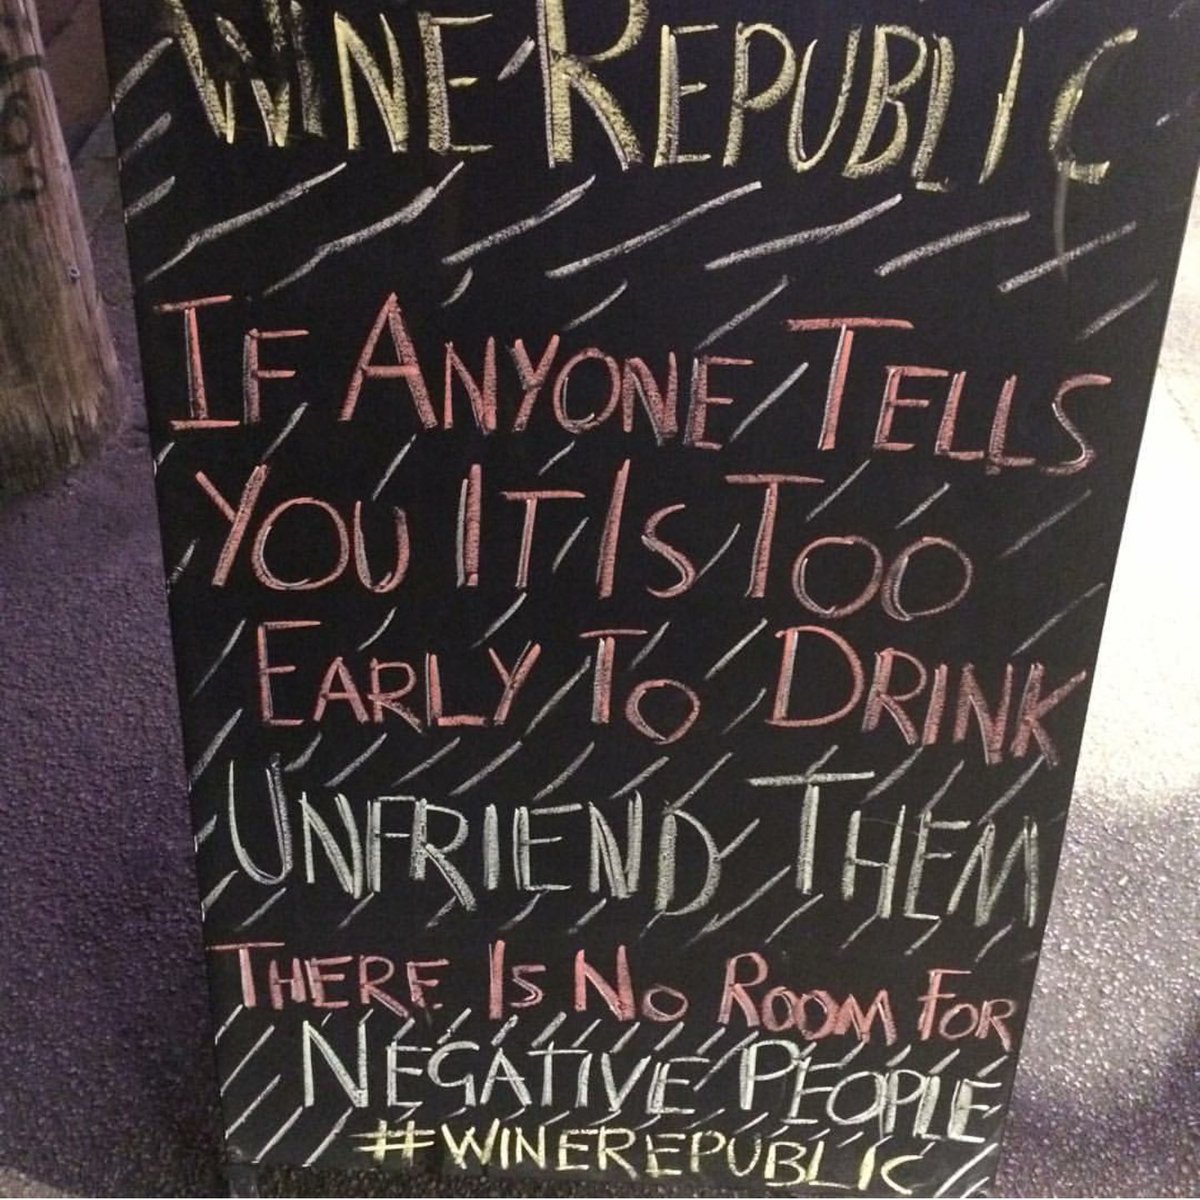 WINE REPUBLIC
IF ANYONE TELLS
YOU IT IS TOO
EARLY TO DRINK
UNFRIEND THEM
THERE IS NO ROOM FOR
NEGATIVE PEOPLE
#WINEREPUBLIC